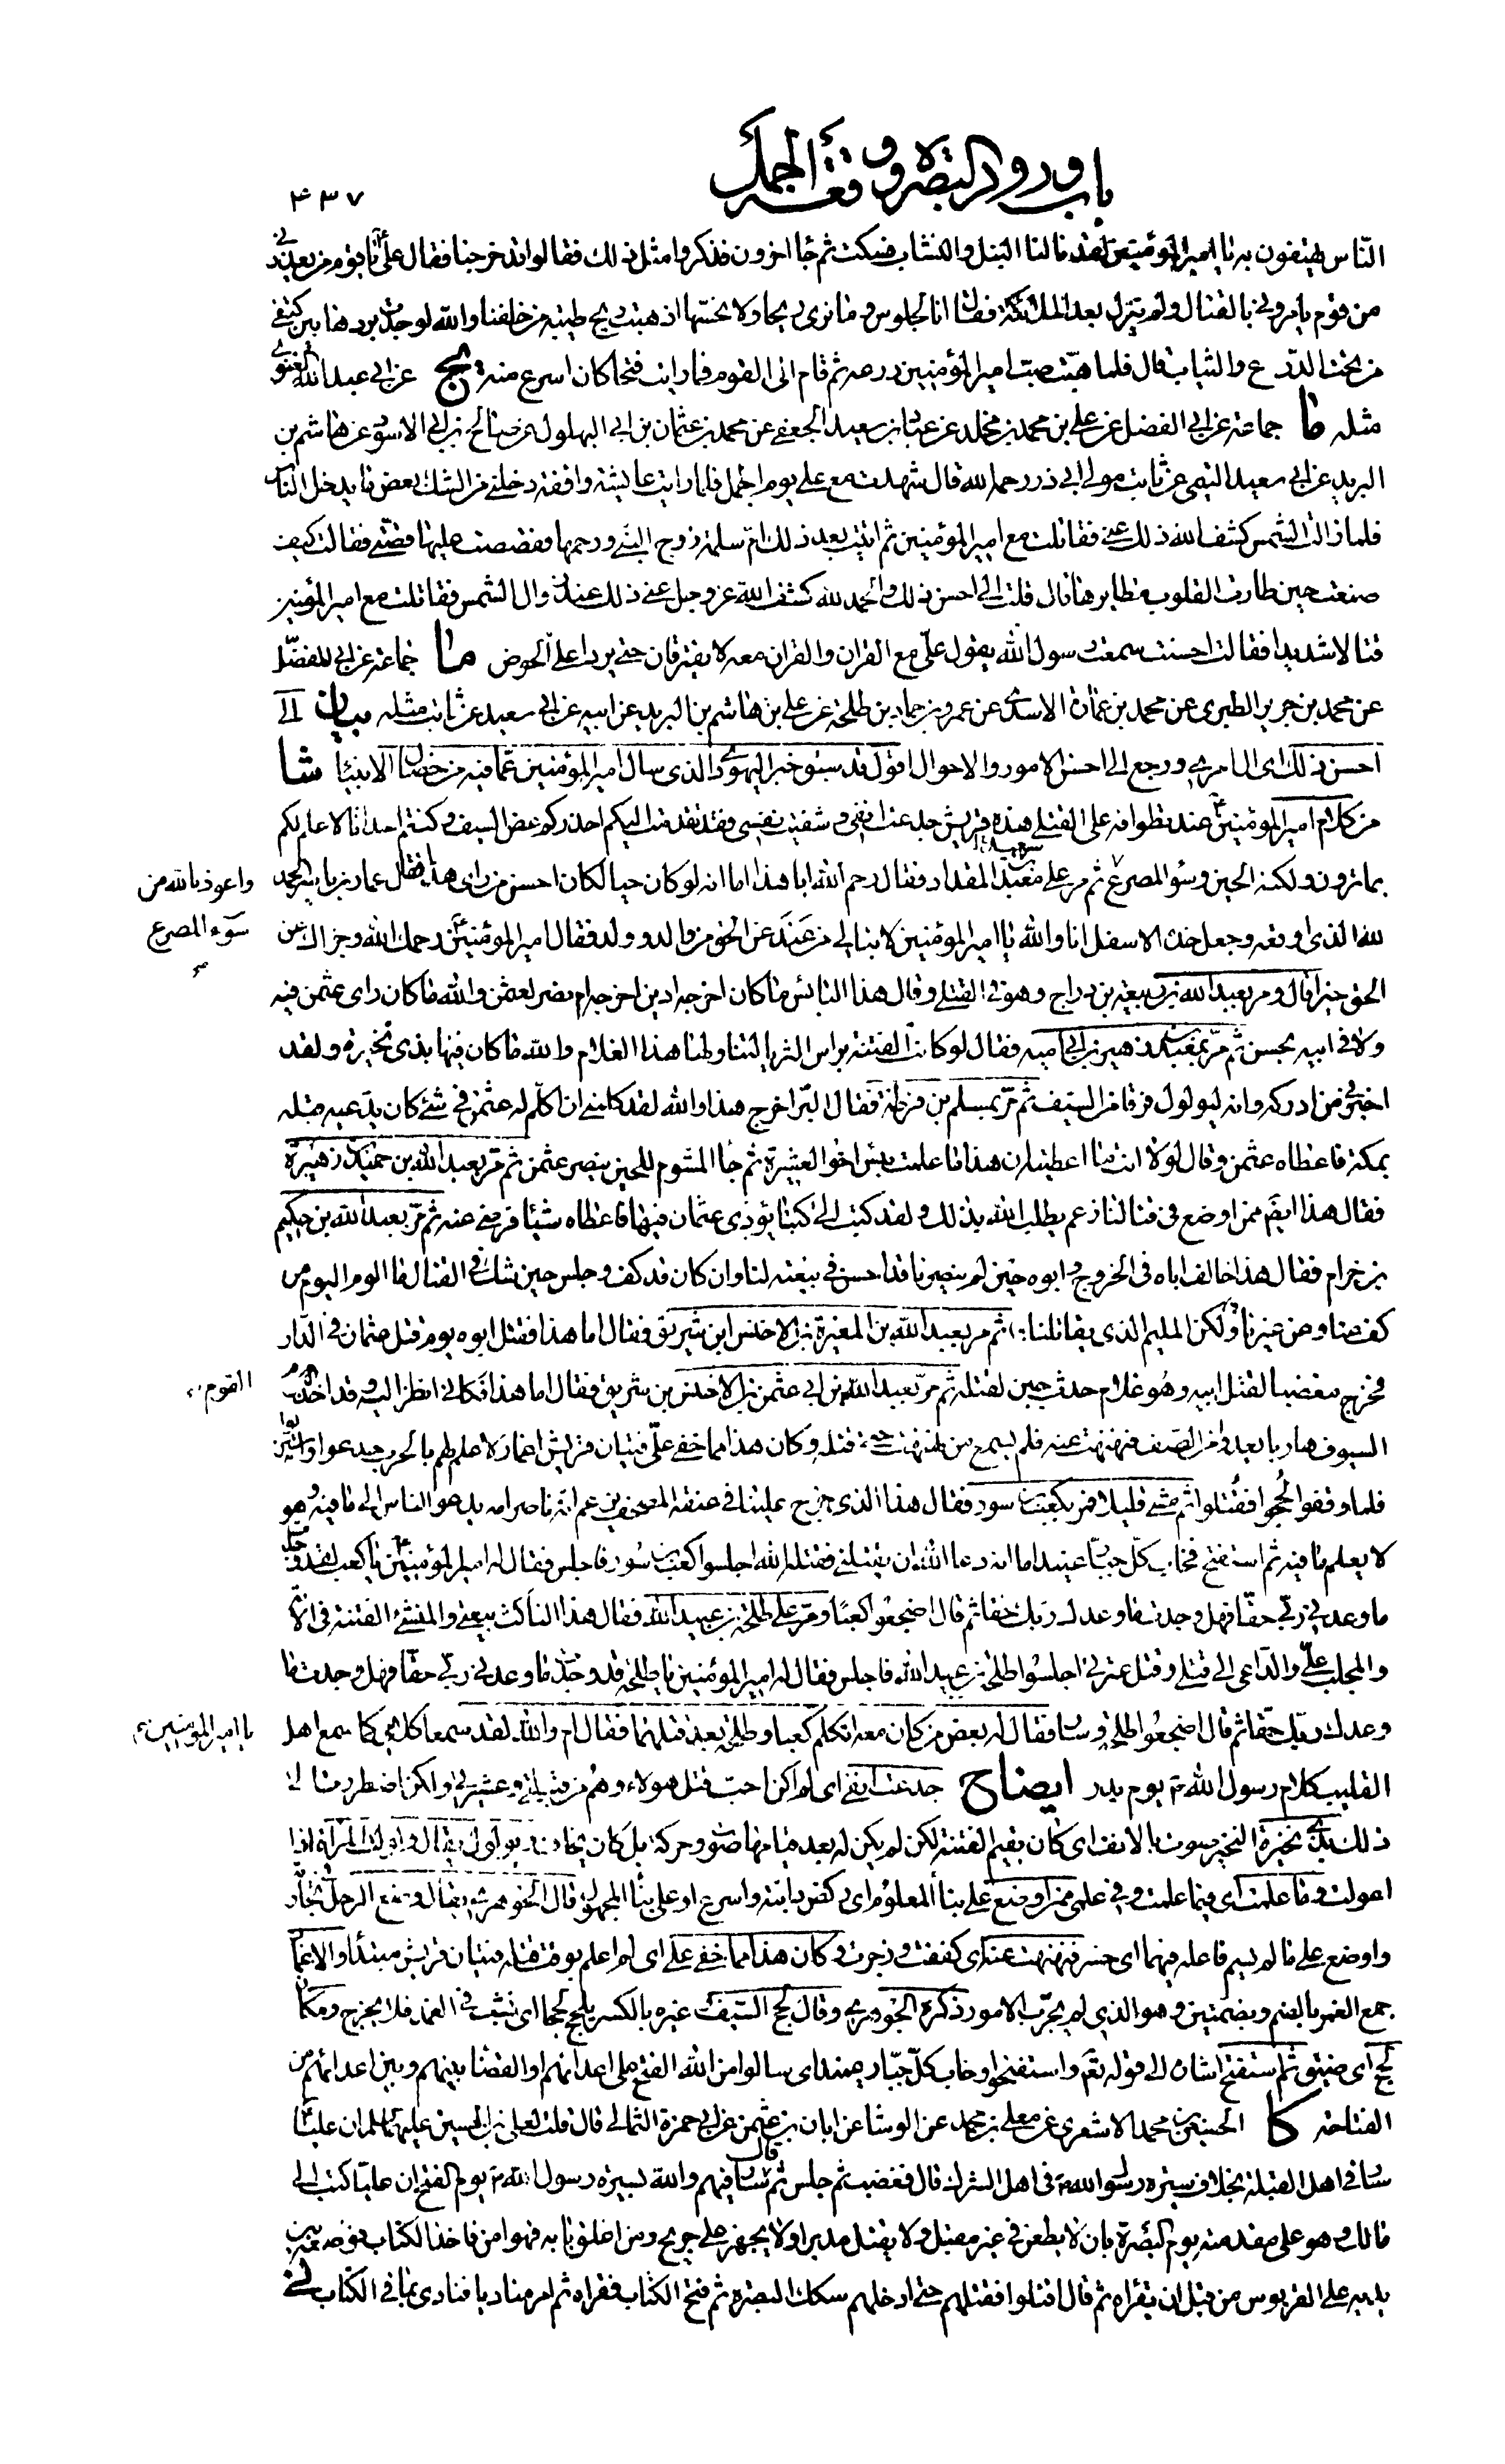 باب ورود البصرة ووقعة الجمل
۴۳۷
النّاس يهتفون به يا امير المؤمنين لقد نالنا النبل والنشاب فسكت ثم جا اخرون فذكروا مثل ذلك فقالوا قد جرحنا فقال علىّ يا قوم من يعذرنى
من قوم يامرونى بالقتال ولم ينزل بعد الملائكة فقال انا لجلوس وما نرى ريحا ولا نحسّها اذ هبت ريح طيبة من خلفنا والله لوجدت بردها بين كتفى
من تحت الدّرع والثياب قال فلما هبّت صب امير المؤمنين درعه ثم قام الى القوم فما رايت فتحا كان اسرع منه يج عن ابى عبد الله الغنوى
مثله ما جماعة عن ابى الفضل عن على بن محمد بن مخلد عن عباد بن سعيد الجعفى عن محمد بن عثمان بن ابى البهلول عن صالح بن ابى الاسود عن هاشم بن
البريد عن ابى سعيد التيمى عن ثابت مولى ابى ذر رحمه الله قال شهدت مع على يوم الجمل فلما رايت عايشة واقفة دخلنى من الشك بعض ما يدخل الناس
فلما زالت الشمس كشف الله ذلك عنى فقاتلت مع امير المؤمنين ثم اتيت بعد ذلك ام سلمة زوج النبى ورحمها فقصصت عليها قصتى فقالت كيف
صنعت حين طارت القلوب مطايرها قال قلت الى احسن ذلك والحمد لله كشف الله عز وجل عنى ذلك عند زوال الشمس فقاتلت مع امير المؤمنين
قتالا شديدا فقالت احسنت سمعت رسول الله يقول علىّ مع القران والقران معه لا يفترقان حتى يردا علىّ الحوض ما جماعة عن ابى المفضل
عن محمد بن جرير الطبرى عن محمد بن عمارة الاسدى عن عمرو بن حماد بن طلحة عن على بن هاشم بن البريد عن ابيه عن ابى سعيد عن ثابت مثله بيان الى
احسن ذلك اى ال امرى ورجع الى احسن الامور والاحوال اقول قد سبق خبر اليهودى الذى سال امير المؤمنين عما فيه من خصال الانبياء شا
من كلام امير المؤمنين عند تطوافه على القتلى هذه قريش جدعت انفى وشفيت نفسى فقد تقدمت اليكم احذركم عض السيف وكنتم احداثا لا علم لكم
بما ترون ولكنه الحين وسوء المصرع ثم مر على معبد بن المقداد فقال رحم الله ابا هذا اما انه لو كان حيا لكان احسن من راى هذا فقال عمار بن ياسر الحمد
واعوذ بالله من
سوء المصرع
لله الذى اوقعه وجعل خده الاسفل انا والله يا امير المؤمنين لا نبالى من عَنَدَ عن الحق من والد وولد فقال امير المؤمنين رحمك الله وجزاك عن
الحق خيرا قال ومر بعبد الله بن ربيعة بن دراج وهو فى القتلى وقال هذا البائس ما كان اخرجه ادين اخرجه ام نصر لعثمن والله ما كان راى عثمن فيه
ولا فى ابيه بحسن ثم مرّ بمعبد بن زهير بن ابى امية فقال لو كانت الفتنة براس الثريا لتناولها هذا الغلام والله ما كان فيها بذى نخيزة ولقد
اخبرنى من ادركه وانه ليولول فرقا من السيف ثم مرّ بمسلم بن قرظة فقال البرّ اخرج هذا والله لقد كلمنى ان اكلّم له عثمن فى شئ كان يدّعيه قبله
بمكة فاعطاه عثمن وقال لولا انت ما اعطيته ان هذا ما علمت بئس اخو العشيرة ثم جا المشوم للحين ينصر عثمن ثم مرّ بعبد الله بن حميد بن زهير
فقال هذا ايضا ممن اوضع فى قتالنا زعم يطلب الله بذلك ولقد كتب الىّ كتبا يوذى عثمان فيها فاعطاه شيئا فرضى عنه ثم مرّ بعبد الله بن حكيم
بن حزام فقال هذا خالف اباه فى الخروج وابوه حين لم ينصرنا قد احسن فى بيعته لنا وان كان قد كف وجلس حين شك فى القتال ما الوم اليوم من
كف عنا وعن غيرنا ولكن المليم الذى يقاتلنا ثم مر بعبد الله بن المغيرة بن الاخنس ابن شريق فقال اما هذا فقتل ابوه يوم قتل عثمان فى الدّار
فخرج مغضبا لقتل ابيه وهو غلام حدث حين لقتله ثم مرّ بعبد الله بن ابى عثمن بن الاخنس بن شريق فقال اما هذا فكانى انظر اليه وقد اخذت
القوم
السيوف هاربا يعدو من الصف فنهنهت عنه فلم يسمع من نهنهت حتى قتله وكان هذا مما خفى علىّ فتيان قريش اغمار لا علم لهم بالحرب خدعوا واستنزلوا
فلما وقفوا لحجوا فقُتلوا ثم مشى قليلا فمر بكعب بن سور فقال هذا الذى خرج علينا فى عنقه المصحف يزعم انه ناصر امه يدعو الناس الى ما فيه وهو
لا يعلم ما فيه ثم استفتح فخاب كلّ جبّار عنيد اما انه دعا الله ان يقتلنى فقتله الله اجلسوا كعب بن سور فاجلس فقال له امير المؤمنين يا كعب لقد وجدت
ما وعدنى ربى حقّا فهل وجدت ما وعدك ربّك حقا ثم قال اضجعوا كعبا ومرّ على طلحة بن عبيد الله فقال هذا الناكث بيعتى والمنشئ الفتنة فى الامّة
والمجلب علىّ والدّاعى الى قتلى وقتل عترتى اجلسوا طلحة بن عبيد الله فاجلس فقال له امير المؤمنين يا طلحة قد وجدت ما وعدنى ربّى حقّا فهل وجدت ما
وعدك ربّك حقّا ثم قال اضجعوا طلحة وسار فقال له بعض من كان معه اتكلم كعبا وطلحة بعد قتلهما فقال ام والله لقد سمعا كلامى كما سمع اهل
يا امير المؤمنين
القليب كلام رسول الله يوم بدر ايضاح جدعت انفى اى لم اكن احب قتل هولاء وهم من قبيلتى وعشيرتى ولكن اضطررت الى
ذلك بذى نخيرة النخير صوت بالانف اى كان يقيم الفتنة لكن لم يكن له بعد قيامها صوت وحركة بل كان يخاف ويولول يقال ولولت المرأة اذا
اعولت وما علمت اى فيما علمت وفى علمى ممن اوضع على بنا المعلوم اى ركض دابته واسرع او على بنا المجهول قال الجوهرى يقال وضع الرجل فى تجارته
واوضع على ما لم يسم فاعله فيهما اى خسر فنهنهت عنه اى كففت وزجرت وكان هذا مما خفى على اى لم اعلم بوقت قتله فتيان قريش مبتدأ والاغمار
جمع الغمر بالضم وبضمتين وهو الذى لم يجرّب الامور ذكره الجوهرى وقال لحج السّيف وغيره بالكسر يلحج لحجا اى نشب فى الغمد فلا يخرج ومكان
لحج اى ضيق ثم استفتح اشارة الى قوله تعه واستفتحوا وخاب كلّ جبّار عنيد اى سالوا من الله الفتح على اعدائهم او القضا بينهم وبين اعدائهم من
الفتاحة كا الحسين بن محمد الاشعرى عن معلى بن محمد عن الوشا عن ابان بن عثمن عن ابى حمزة الثمالى قال قلت لعلى بن الحسين عليهما السلم ان عليّا
سار فى اهل القبلة بخلاف سيرة رسول الله فى اهل الشرك قال فغضب ثم جلس ثم قال سار فيهم والله بسيرة رسول الله يوم الفتح ان عليّا كتب الى
مالك وهو على مقدمته يوم البصرة بان لا يطعن فى غير مقبل ولا يقتل مدبرا ولا يجهز على جريح ومن اغلق بابه فهو امن فاخذ الكتاب فوضعه بين
يديه على القربوس من قبل ان يقرأه ثم قال اقتلوا فقتلهم حتى ادخلهم سكك البصرة ثم فتح الكتاب فقراه ثم امر مناديا فنادى بما فى الكتاب لى